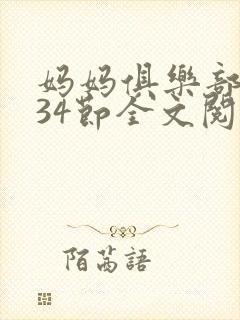 妈妈俱樂部
34節全文閱
陌芮語